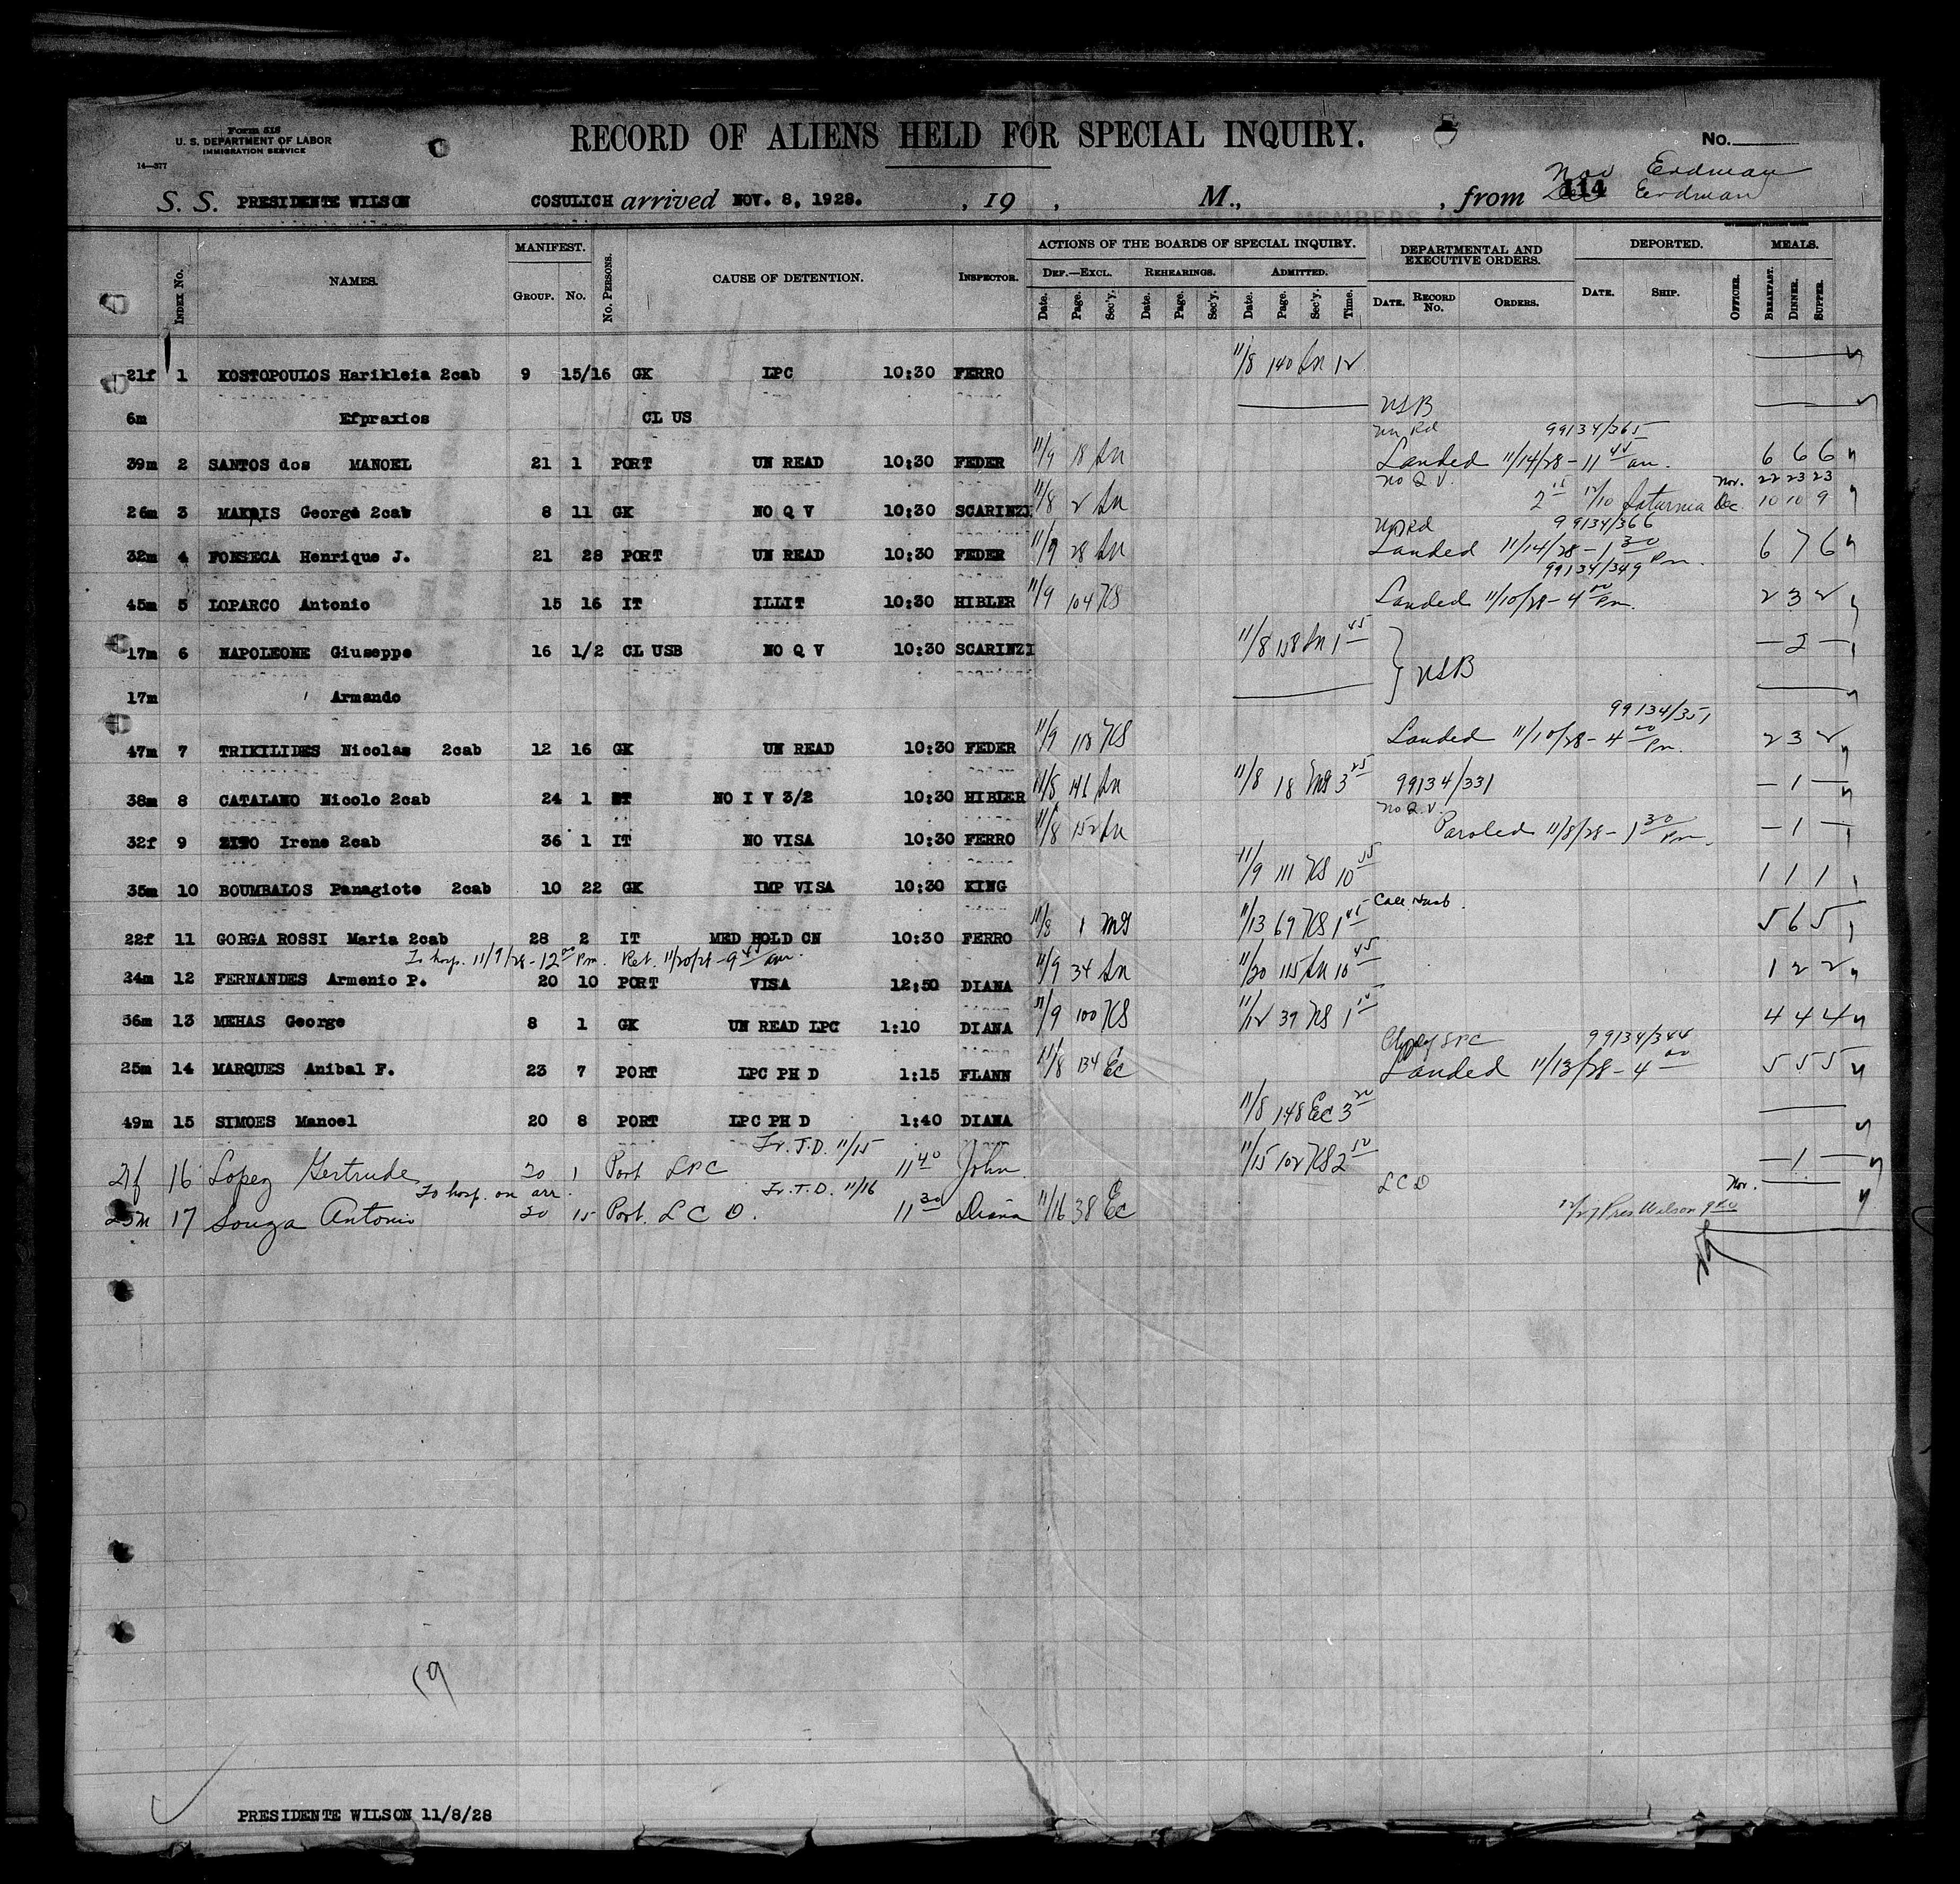 Form 518
U. S. DEPARTMENT OF LABOR
IMMIGRATION SERVICE
14—377
RECORD OF ALIENS HELD FOR SPECIAL INQUIRY.
No.
Nov Erdman
S. S. PRESIDENTE WILSON COSULICH arrived NOV. 8, 1928. , 19 , M., , from 114 Dec Erdman
INDEX No. NAMES. MANIFEST. GROUP. No. No. PERSONS. CAUSE OF DETENTION. INSPECTOR. ACTIONS OF THE BOARDS OF SPECIAL INQUIRY. DEPARTMENTAL AND EXECUTIVE ORDERS. DEPORTED. MEALS.
DEF.—EXCL. REHEARINGS. ADMITTED.
Date. Page. Sec'y. Date. Page. Sec'y. Date. Page. Sec'y. Time. DATE. RECORD No. ORDERS. DATE. SHIP. OFFICER. BREAKFAST. DINNER. SUPPER.
21f 1 KOSTOPOULOS Harikleia 2cab 9 15/16 GK LPC 10:30 FERRO 11/8 140 Sn 12
6m Efpraxios CL US USB
un Rd 99134/365
39m 2 SANTOS dos MANOEL 21 1 PORT UN READ 10:30 FEDER 11/9 18 Sn Landed 11/14/28 - 11 45 am. 6 6 6
no Q.V. Nov. 22 23 23
26m 3 MAKRIS George 2cab 8 11 GK NO Q V 10:30 SCARINZI 11/8 2 Sn 2 15 12/10 Saturnia Dec. 10 10 9
un Rd 99134/366
32m 4 FONSECA Henrique J. 21 28 PORT UN READ 10:30 FEDER 11/9 28 Sn Landed 11/14/28 - 1 30 Pm. 6 7 6
99134/349
45m 5 LOPARCO Antonio 15 16 IT ILLIT 10:30 HIBLER 11/9 104 KS Landed 11/10/28 - 4 00 Pm. 2 3 2
17m 6 NAPOLEONE Giuseppe 16 1/2 CL USB NO Q V 10:30 SCARINZI 11/8 158 Sn 1 45 USB — 2 —
17m ' Armando
99134/351
47m 7 TRIKILIDES Nicolas 2cab 12 16 GK UN READ 10:30 FEDER 11/9 118 KS Landed 11/10/28 - 4 00 Pm. 2 3 2
38m 8 CATALANO Nicolo 2cab 24 1 IT NO I V 3/2 10:30 HIBLER 11/8 141 Sn 11/8 18 MS 3 25 99134/331 — 1 —
no Q.V.
32f 9 ZITO Irene 2cab 36 1 IT NO VISA 10:30 FERRO 11/8 152 Sn Paroled 11/8/28 - 1 30 Pm. — 1 —
35m 10 BOUMBALOS Panagiote 2cab 10 22 GK IMP VISA 10:30 KING 11/9 111 KS 10 55 1 1 1
22f 11 GORGA ROSSI Maria 2cab 28 2 IT MED HOLD CN 10:30 FERRO 11/8 1 MS 11/13 69 KS 1 45 5 6 5
To hosp. 11/9/28 - 12 00 Pm. Ret. 11/20/28 - 9 45 am.
24m 12 FERNANDES Armenio P. 20 10 PORT VISA 12:50 DIANA 11/9 34 Sn 11/20 115 Sn 10 45 1 2 2
36m 13 MEHAS George 8 1 GK UN READ LPC 1:10 DIANA 11/9 100 KS 11/12 39 KS 1 10 4 4 4
LPC 99134/344
25m 14 MARQUES Anibal F. 23 7 PORT LPC PH D 1:15 FLANN 11/8 134 Ec Landed 11/13/28 - 4 00 5 5 5
49m 15 SIMOES Manoel 20 8 PORT LPC PH D 1:40 DIANA 11/8 148 Ec 3 20
Fr. T.D. 11/15
21f 16 Lopez Gertrude 20 1 Port LPC 11 40 John 11/15 102 KS 2 50 — 1 —
To hosp. on arr. Fr. T.D. 11/16 LCD Nov.
17 Souza Antonio 20 15 Port. L C D. 11 30 Diana 11/16 38 Ec 12/27 Pres Wilson
19
PRESIDENTE WILSON 11/8/28